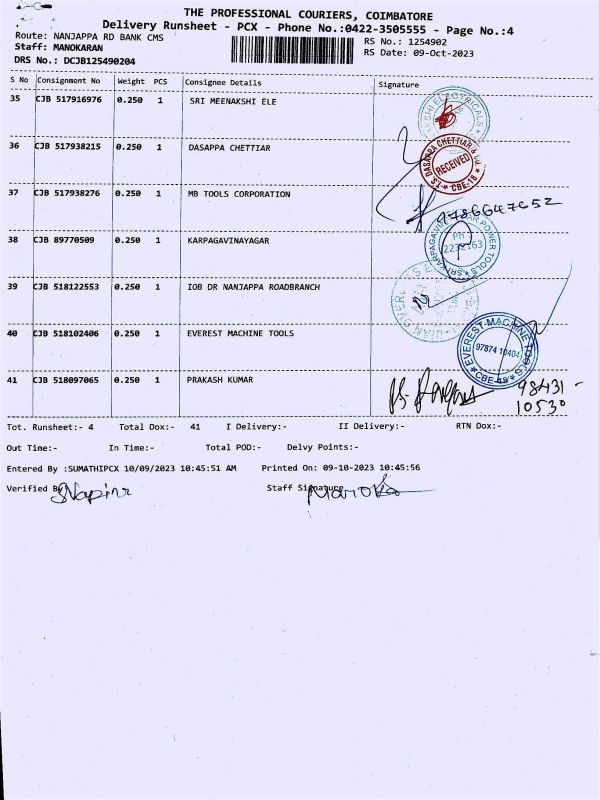 THE PROFESSIONAL COURIERS, COIMBATORE
Delivery Runsheet - PCX - Phone No.:0422-3505555 - Page No.:4
Route: NANJAPPA RD BANK CMS
RS No.: 1254902
Staff: MANOKARAN
RS Date: 09-Oct-2023
DRS No.: DCJB125490204
S No Consignment No Weight PCS Consignee Details Signature
35 CJB 517916976 0.250 1 SRI MEENAKSHI ELE
36 CJB 517938215 0.250 1 DASAPPA CHETTIAR
DASAPPA CHETTIAR
RECEIVED
CBE-18
37 CJB 517938276 0.250 1 MB TOOLS CORPORATION
9786647652
38 CJB 89770509 0.250 1 KARPAGAVINAYAGAR
39 CJB 518122553 0.250 1 IOB DR NANJAPPA ROADBRANCH
40 CJB 518102406 0.250 1 EVEREST MACHINE TOOLS
EVEREST MACHINE TOOLS
97874 10404
CBE-18
41 CJB 518097065 0.250 1 PRAKASH KUMAR
98431 -
10530
Tot. Runsheet:- 4 Total Dox:- 41 I Delivery:- II Delivery:- RTN Dox:-
Out Time:- In Time:- Total POD:- Delvy Points:-
Entered By :SUMATHIPCX 10/09/2023 10:45:51 AM Printed On: 09-10-2023 10:45:56
Verified By Staff Signature